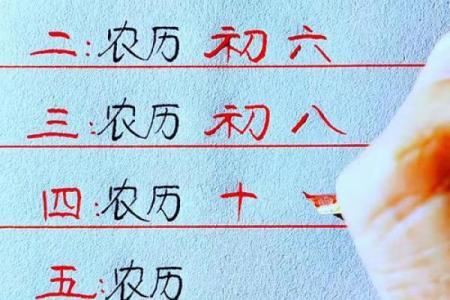 二:农历 初六
三:农历 初八
四:农历 十一
五:农历